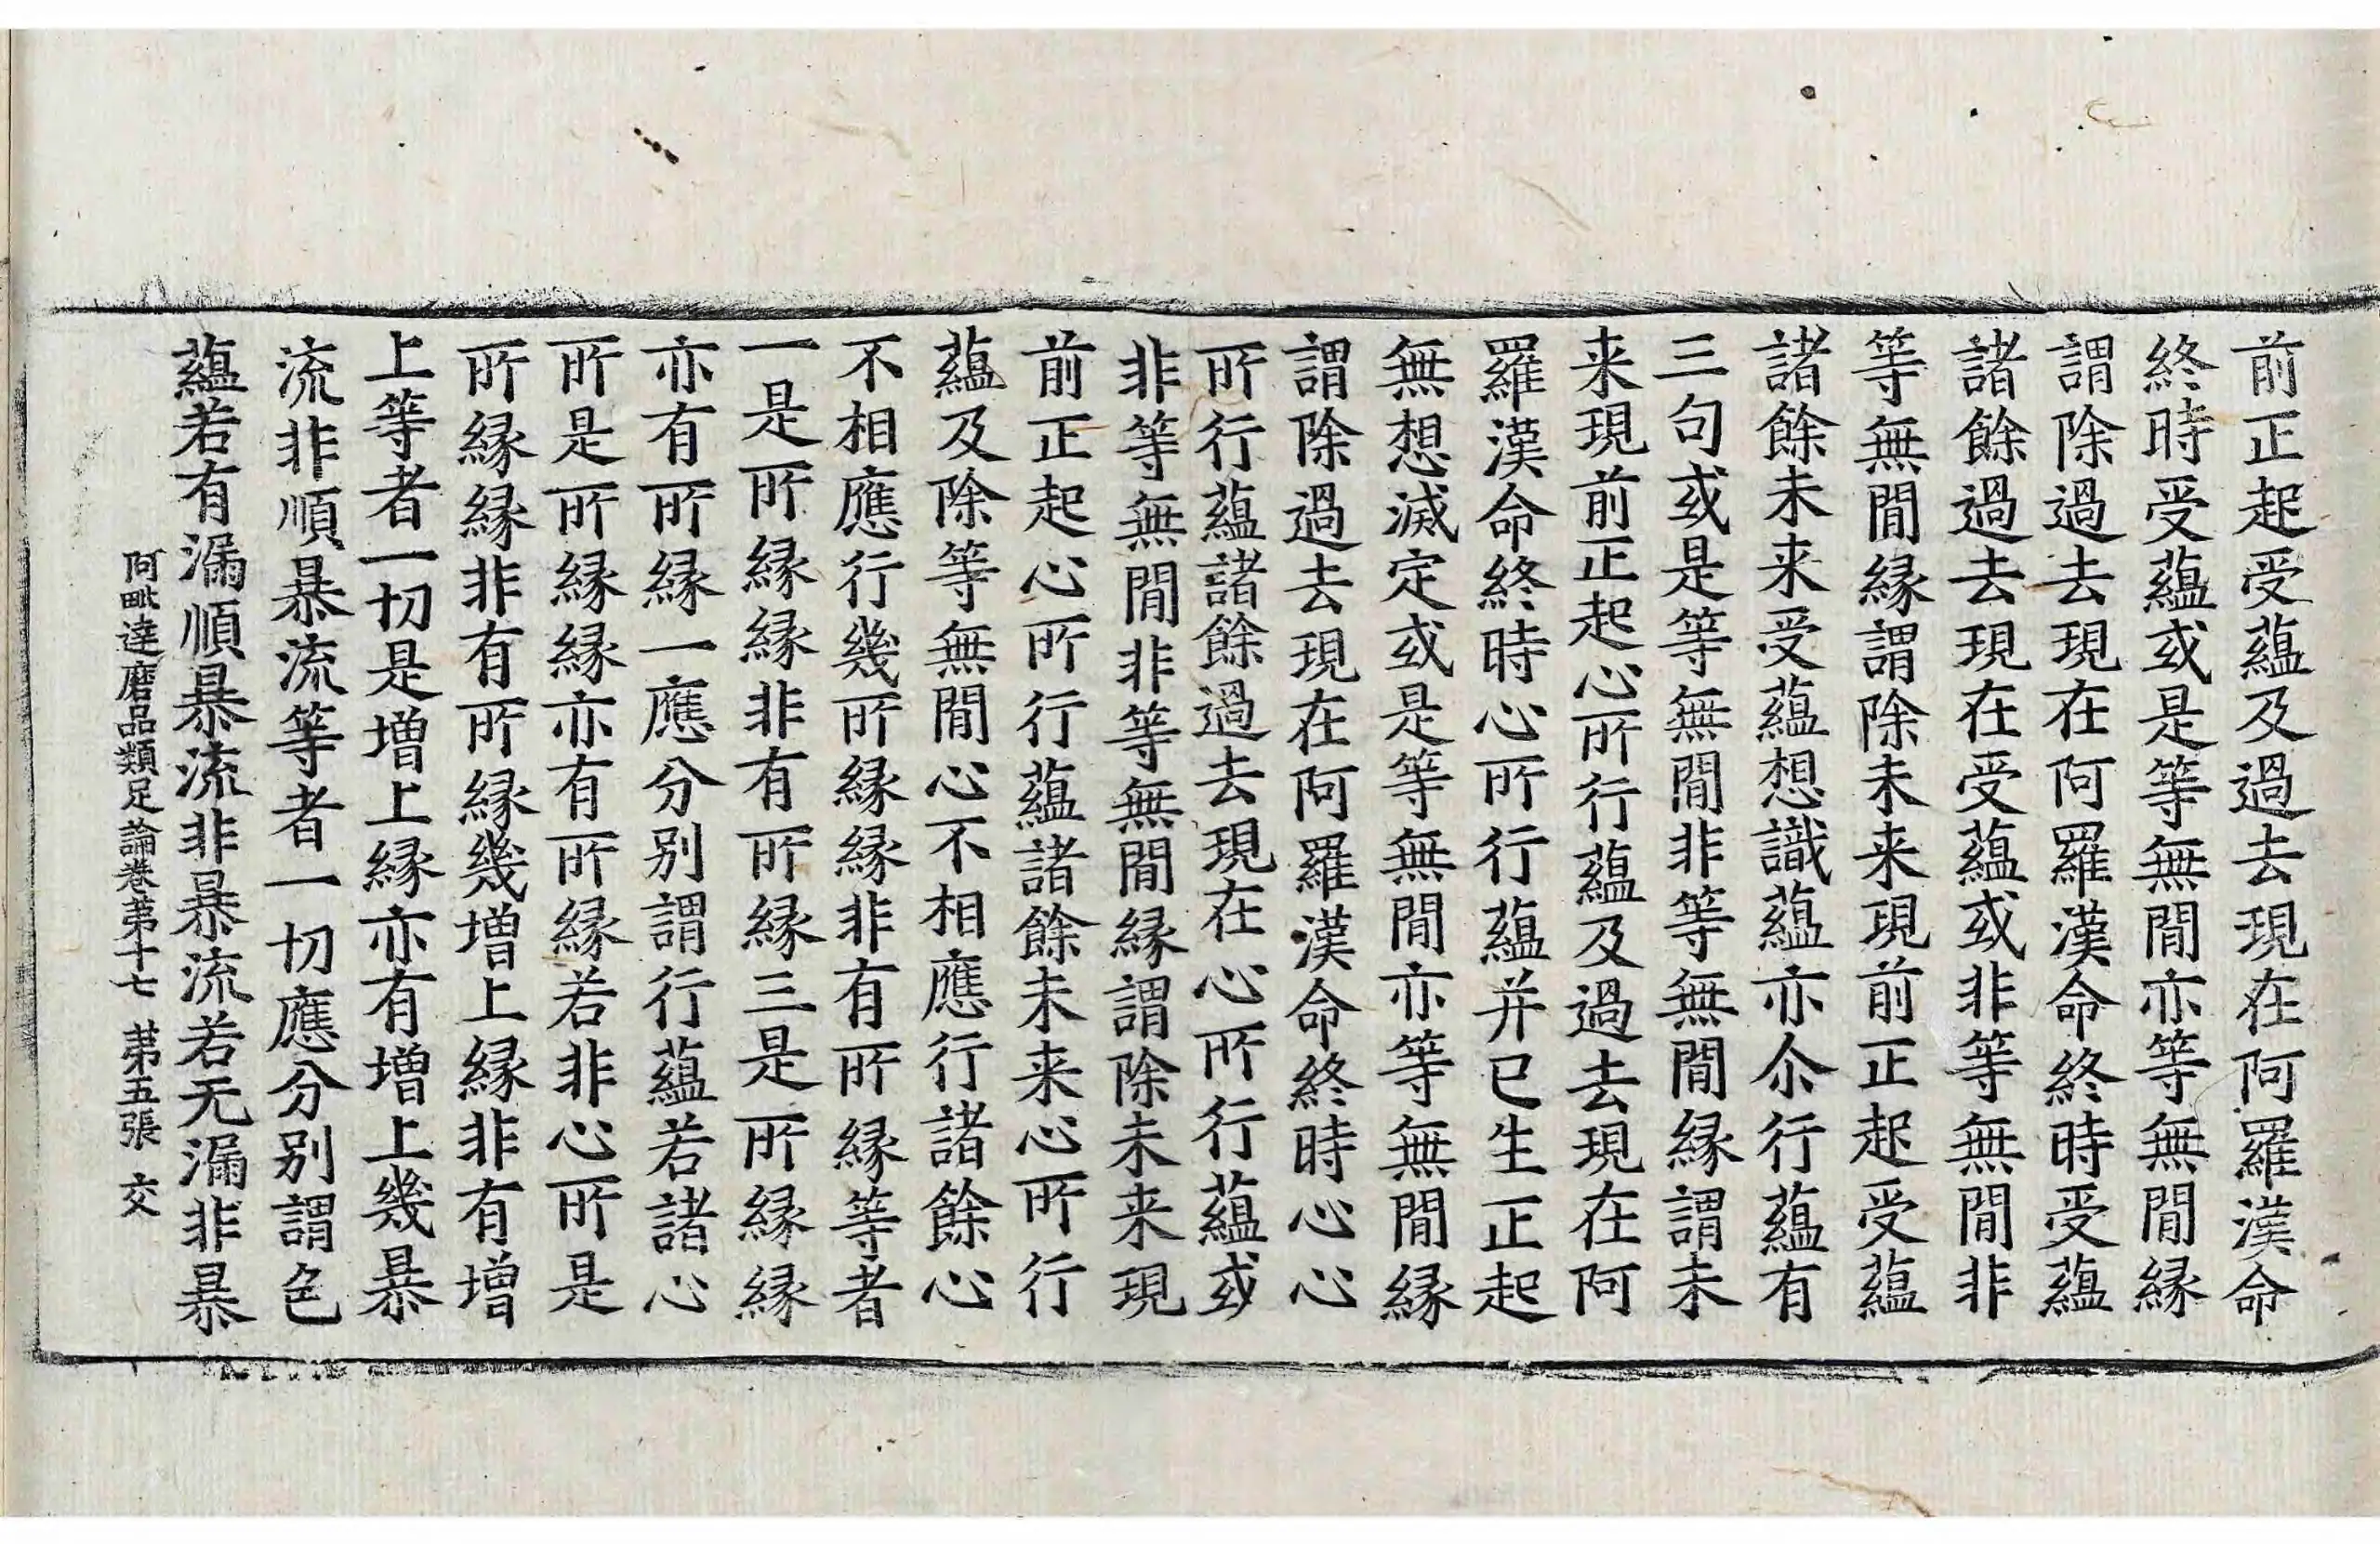 前正起受蘊及過去現在阿羅漢命
終時受蘊或是等無間亦等無間縁
謂除過去現在阿羅漢命終時受蘊
諸餘過去現在受蘊或非等無間非
等無間縁謂除未来現前正起受蘊
諸餘未来受蘊想識蘊亦尒行蘊有
三句或是等無間非等無間縁謂未
来現前正起心所行蘊及過去現在阿
羅漢命終時心所行蘊并已生正起
無想滅定或是等無間亦等無間縁
謂除過去現在阿羅漢命終時心心
所行蘊諸餘過去現在心所行蘊或
非等無間非等無間縁謂除未来現
前正起心所行蘊諸餘未来心所行
蘊及除等無間心不相應行諸餘心
不相應行幾所縁縁非有所縁等者
一是所縁縁非有所縁三是所縁縁
亦有所縁一應分別謂行蘊若諸心
所是所縁縁亦有所縁若非心所是
所縁縁非有所縁幾增上縁非有增
上等者一切是增上縁亦有增上幾暴
流非順暴流等者一切應分別謂色
蘊若有漏順暴流非暴流若无漏非暴
阿毗達磨品類足論卷苐十七 苐五張 交